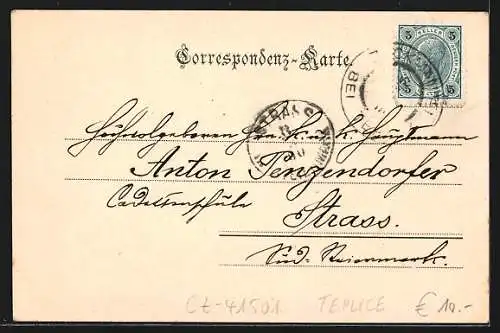 5 HELLER 5
5 5
Correspondenz-Karte.
BEI
STRASS
Hochwohlgeboren Herrn k. u. k. Hauptmann
Anton Penzendorfer
Cadettenschule
Strass.
Süd-Steiermark.
CZ-41501 TEPLICE € 10.-